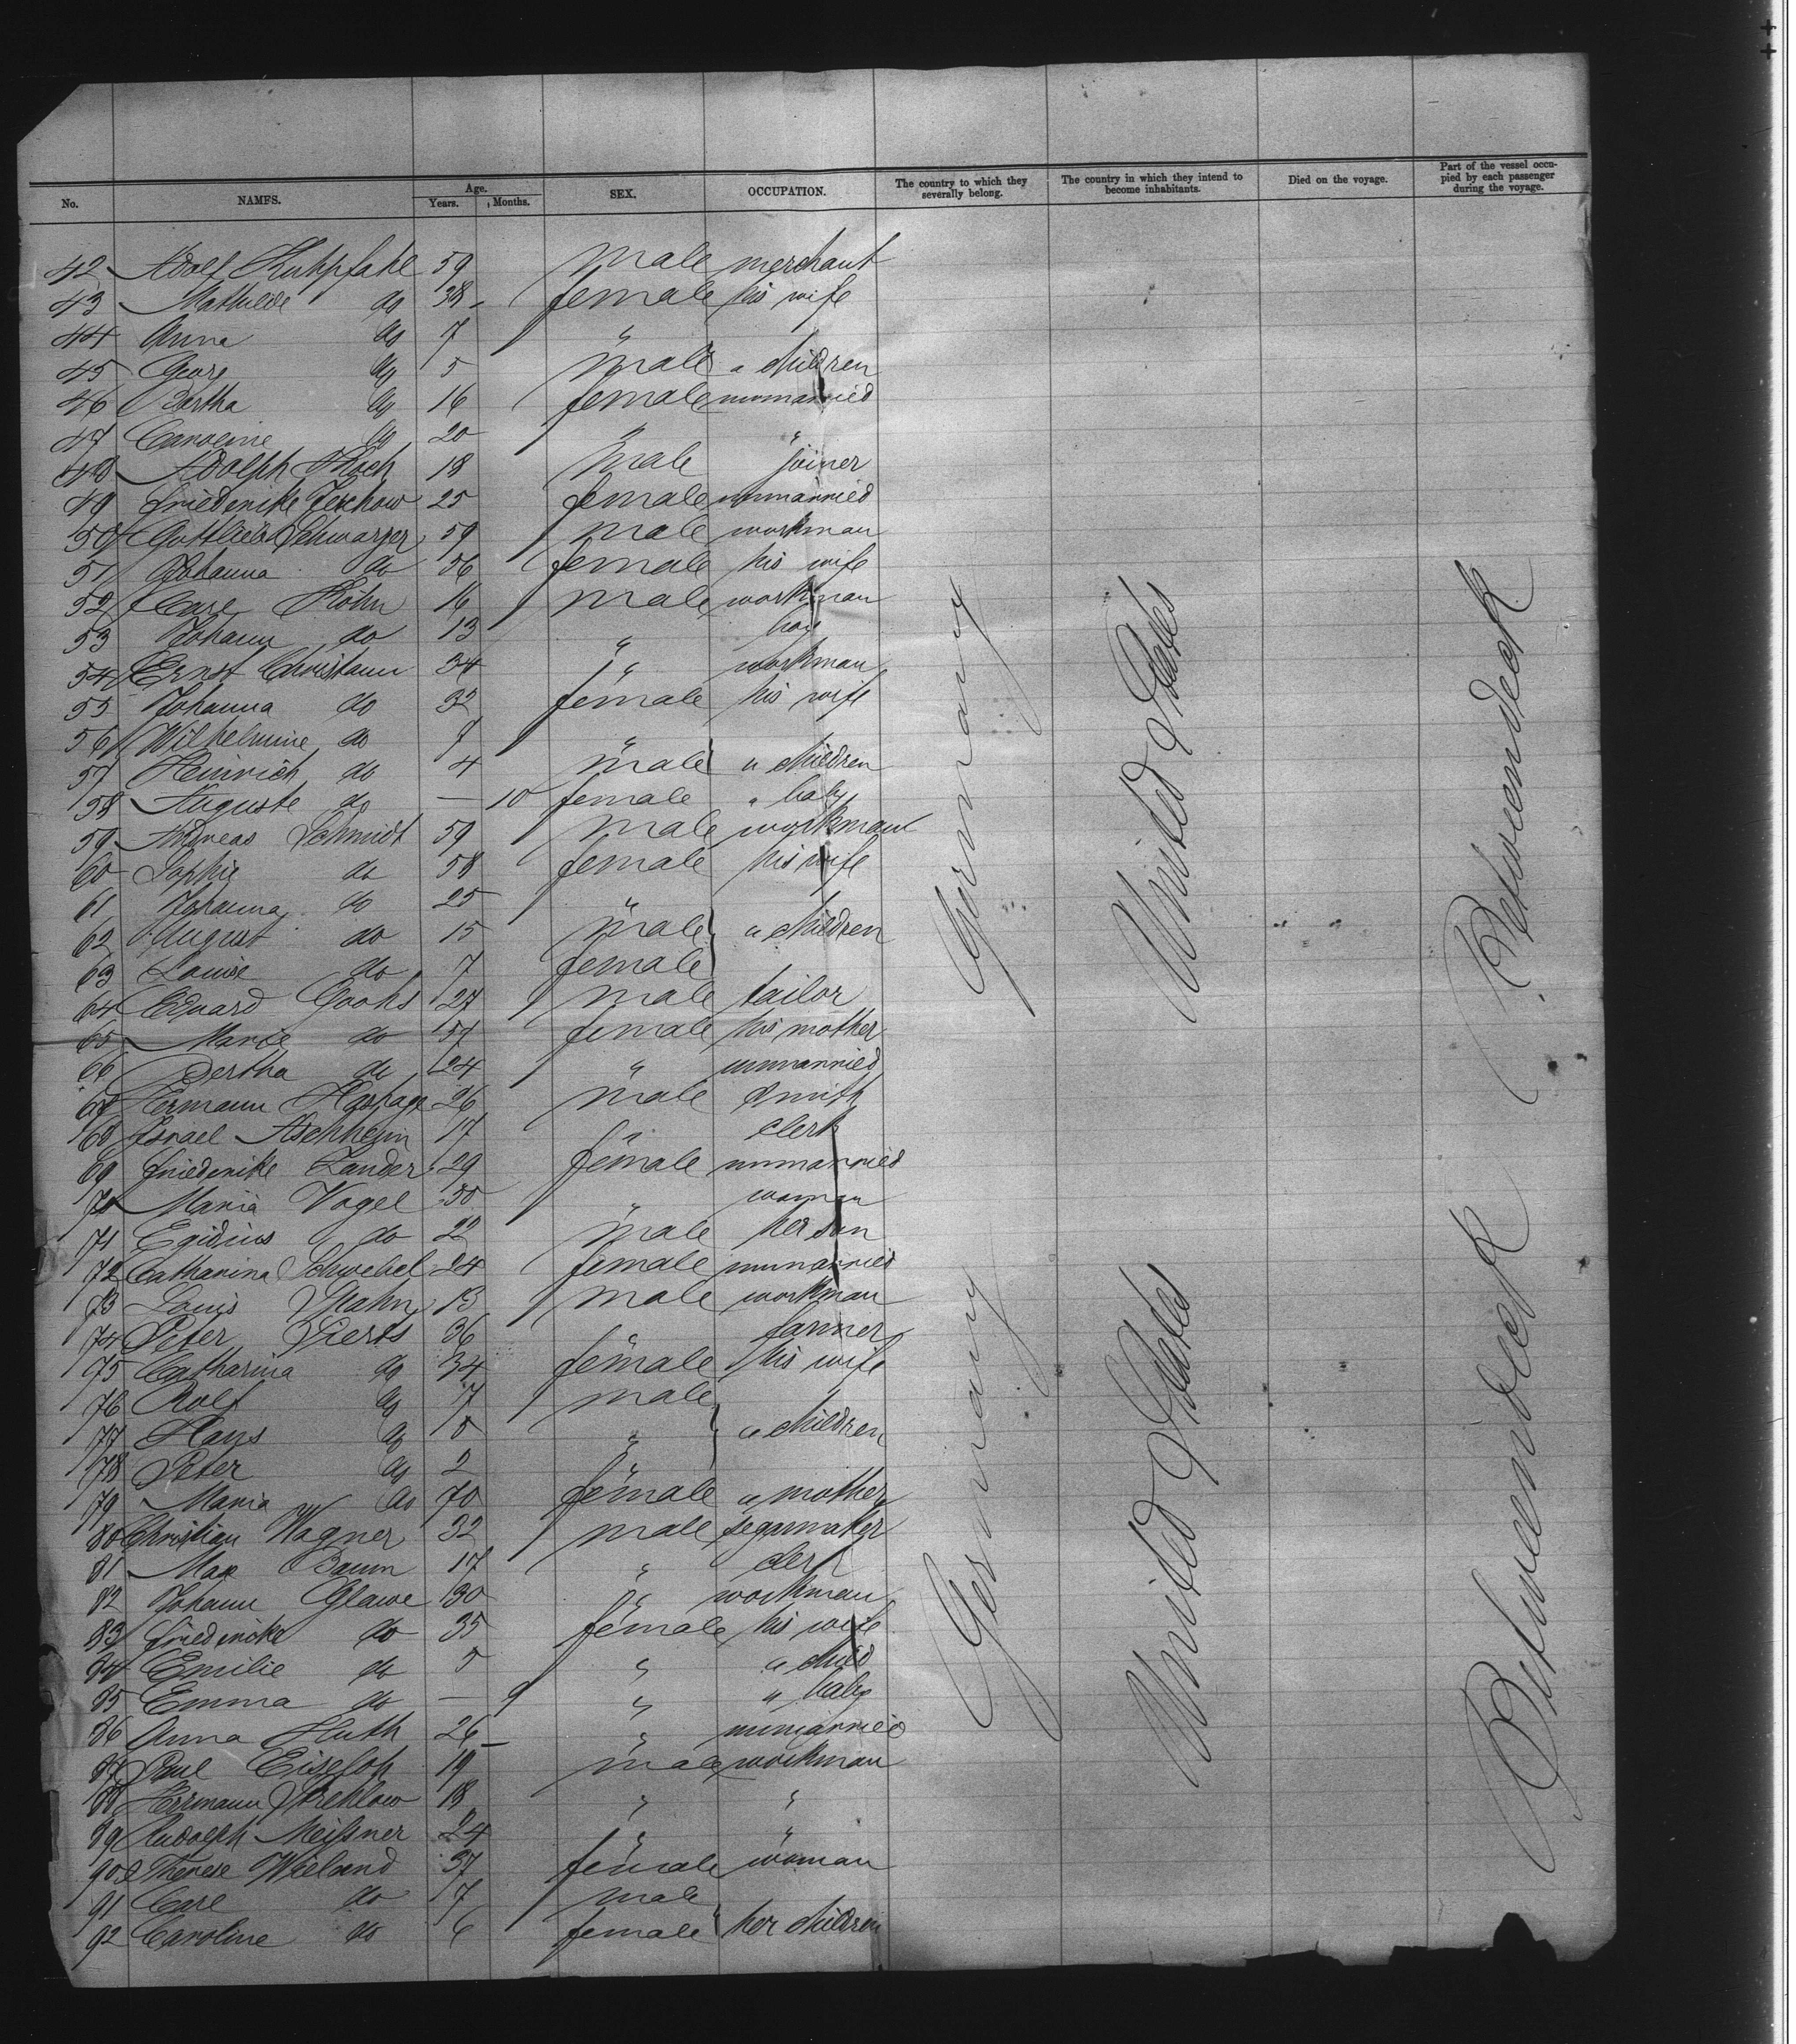 No. NAMES. Age. Years. Months. SEX. OCCUPATION. The country to which they severally belong. The country in which they intend to become inhabitants. Died on the voyage. Part of the vessel occupied by each passenger during the voyage.
42 Adolf Kuhpfahl 59 male merchant
43 Mathilde do 38 female his wife
44 Anna do 7 "
45 Georg do 5 male " children
46 Bertha do 16 female unmarried
47 Caroline do 20 " "
48 Adolph Koch 18 male joiner
49 Friederike 25 female unmarried
50 Gottlieb Schwarzer 59 male workman
51 Johanna do 56 female his wife
52 Carl Röhn 16 male workman
53 Johann do 13 " boy
54 Ernst Christann 34 " workman
55 Johanna do 32 female his wife
56 Wilhelmine do 9 "
57 Heinrich do 4 male " children
58 Auguste do — 10 female " baby
59 Andreas Schmidt 59 male workman
60 Sophie do 58 female his wife
61 Johanna do 25 "
62 August do 15 male " children
63 Louise do 7 female
64 Eduard Goohs 27 male tailor
65 Marie do 57 female his mother
66 Bertha do 24 " unmarried
67 Hermann Hashage 26 male smith
68 Israel Aschheim 17 " clerk
69 Friederike Zander 29 female unmarried
70 Maria Vogel 50 " woman
71 Egidius do 22 male her son
72 Catharina Schwebel 24 female unmarried
73 Louis Hahn 13 male workman
74 Peter Sierts 36 " farmer
75 Catharina do 34 female his wife
76 Rolf do 7 male
77 Hans do 5 " " children
78 Peter do 2 "
79 Maria do 70 female " mother
80 Christian Wagner 32 male segarmaker
81 Max Baum 17 " clerk
82 Johann Glawe 30 " workman
83 Friedericke do 35 female his wife
84 Emilie do 5 " " child
85 Emma do — 9 " " baby
86 Anna Huth 26 " unmarried
87 Paul 19 male workman
88 Herrmann Strehlow 18 " "
89 Rudolph Meißner 24 " "
90 Therese Wieland 37 female woman
91 Carl do 7 male
92 Caroline do 6 female her children
Germany United States Betweendeck
Germany United States Betweendeck